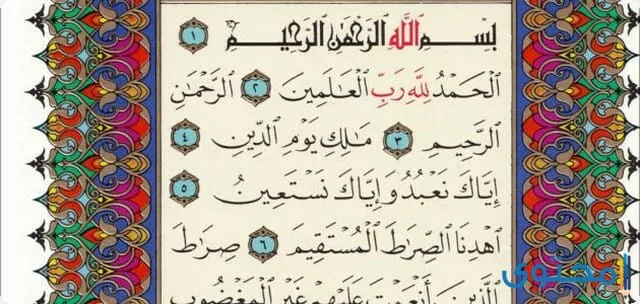 بِسْمِ اللَّهِ الرَّحْمَٰنِ الرَّحِيمِ ١
الْحَمْدُ لِلَّهِ رَبِّ الْعَالَمِينَ ٢ الرَّحْمَٰنِ
الرَّحِيمِ ٣ مَالِكِ يَوْمِ الدِّينِ ٤
إِيَّاكَ نَعْبُدُ وَإِيَّاكَ نَسْتَعِينُ ٥
اهْدِنَا الصِّرَاطَ الْمُسْتَقِيمَ ٦ صِرَاطَ
الَّذِينَ أَنْعَمْتَ عَلَيْهِمْ غَيْرِ الْمَغْضُوبِ
المحتوى